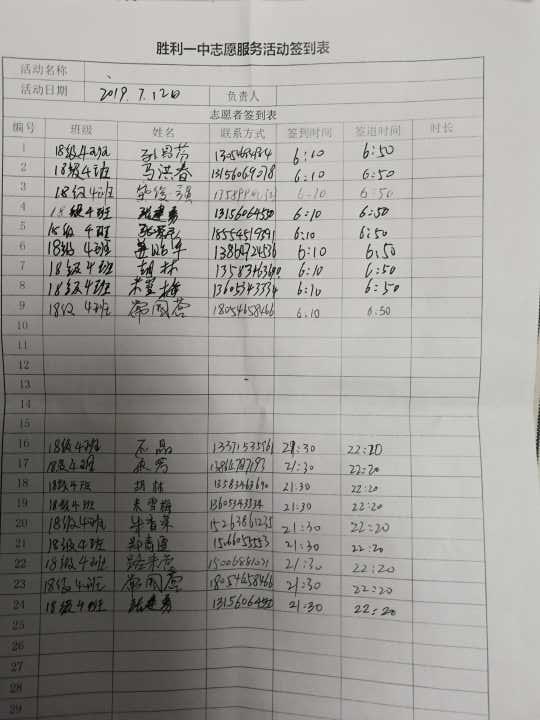 胜利一中志愿服务活动签到表
活动名称
活动日期 2019.7.12日 负责人
志愿者签到表
编号 班级 姓名 联系方式 签到时间 签退时间 时长
1 18级4班 6:10 6:50
2 18级4班 马洪春 13156069078 6:10 6:50
3 18级4班 6:10 6:50
4 18级4班 6:10 6:50
5 18级4班 18554519591 6:10 6:50
6 18级4班 6:10 6:50
7 18级4班 胡林 6:10 6:50
8 18级4班 朱雪梅 13605343334 6:10 6:50
9 18级4班 18054658466 6:10 6:50
10
11
12
13
14
15
16 18级4班 13371535561 21:30 22:20
17 18级4班 21:30 22:20
18 18级4班 胡林 13583463690 21:30 22:20
19 18级4班 朱雪梅 21:30 22:20
20 18级4班 15263861235 21:30 22:20
21 18级4班 21:30 22:20
22 18级4班 15006881021 21:30 22:20
23 18级4班 18054658466 21:30 22:20
24 18级4班 21:30 22:20
25
26
27
28
29